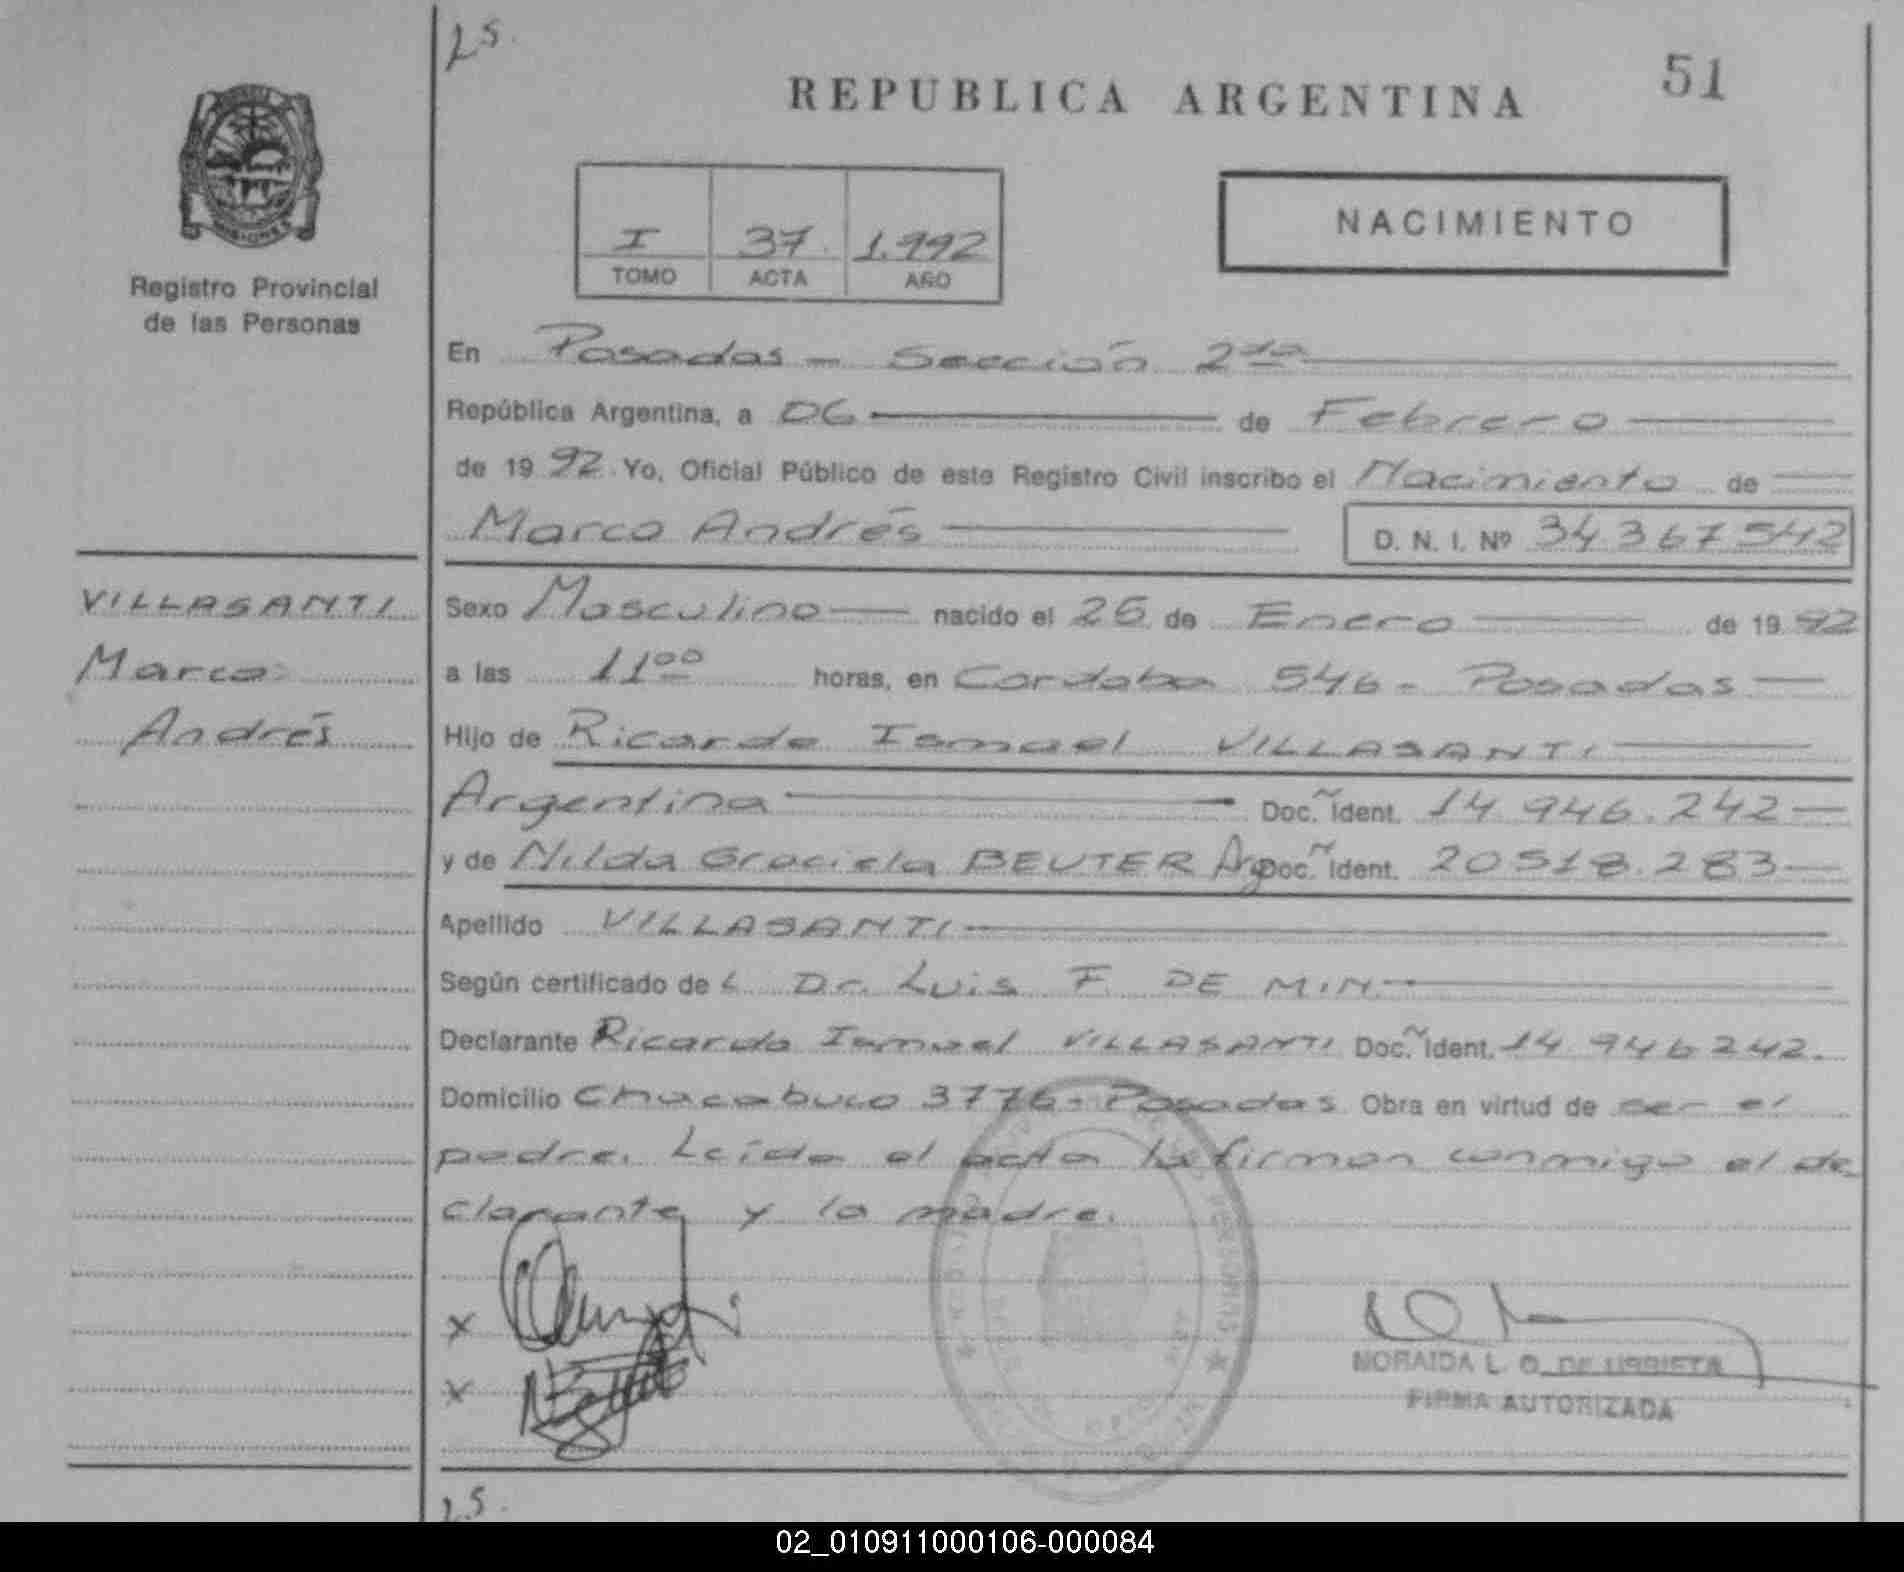 LS.
51
REPUBLICA ARGENTINA
I 37 1.992
TOMO ACTA AÑO
NACIMIENTO
MISIONES
Registro Provincial
de las Personas
En Posadas - Sección 2da
República Argentina, a 06 de Febrero
de 1992 Yo, Oficial Público de este Registro Civil inscribo el Nacimiento de
Marco Andrés D. N. I. Nº 34367542
VILLASANTI
Marco
Andrés
Sexo Masculino nacido el 26 de Enero de 1992
a las 11 00 horas, en Cordoba 546 - Posadas
Hijo de Ricardo Ismael VILLASANTI
Argentina Doc. Ident. 14.946.242
y de Nilda Graciela BEUTER Arg Doc. Ident. 20518.283
Apellido VILLASANTI
Según certificado del Dr. Luis F. DE MIN.
Declarante Ricardo Ismael VILLASANTI Doc. Ident. 14.946242.
Domicilio Chacabuco 3776 - Posadas Obra en virtud de ser el
padre. Leída el acta la firman conmigo el de
clarante y la madre.
x
x
MORAIDA L. O. DE URBIETA
FIRMA AUTORIZADA
LS.
02_010911000106-000084